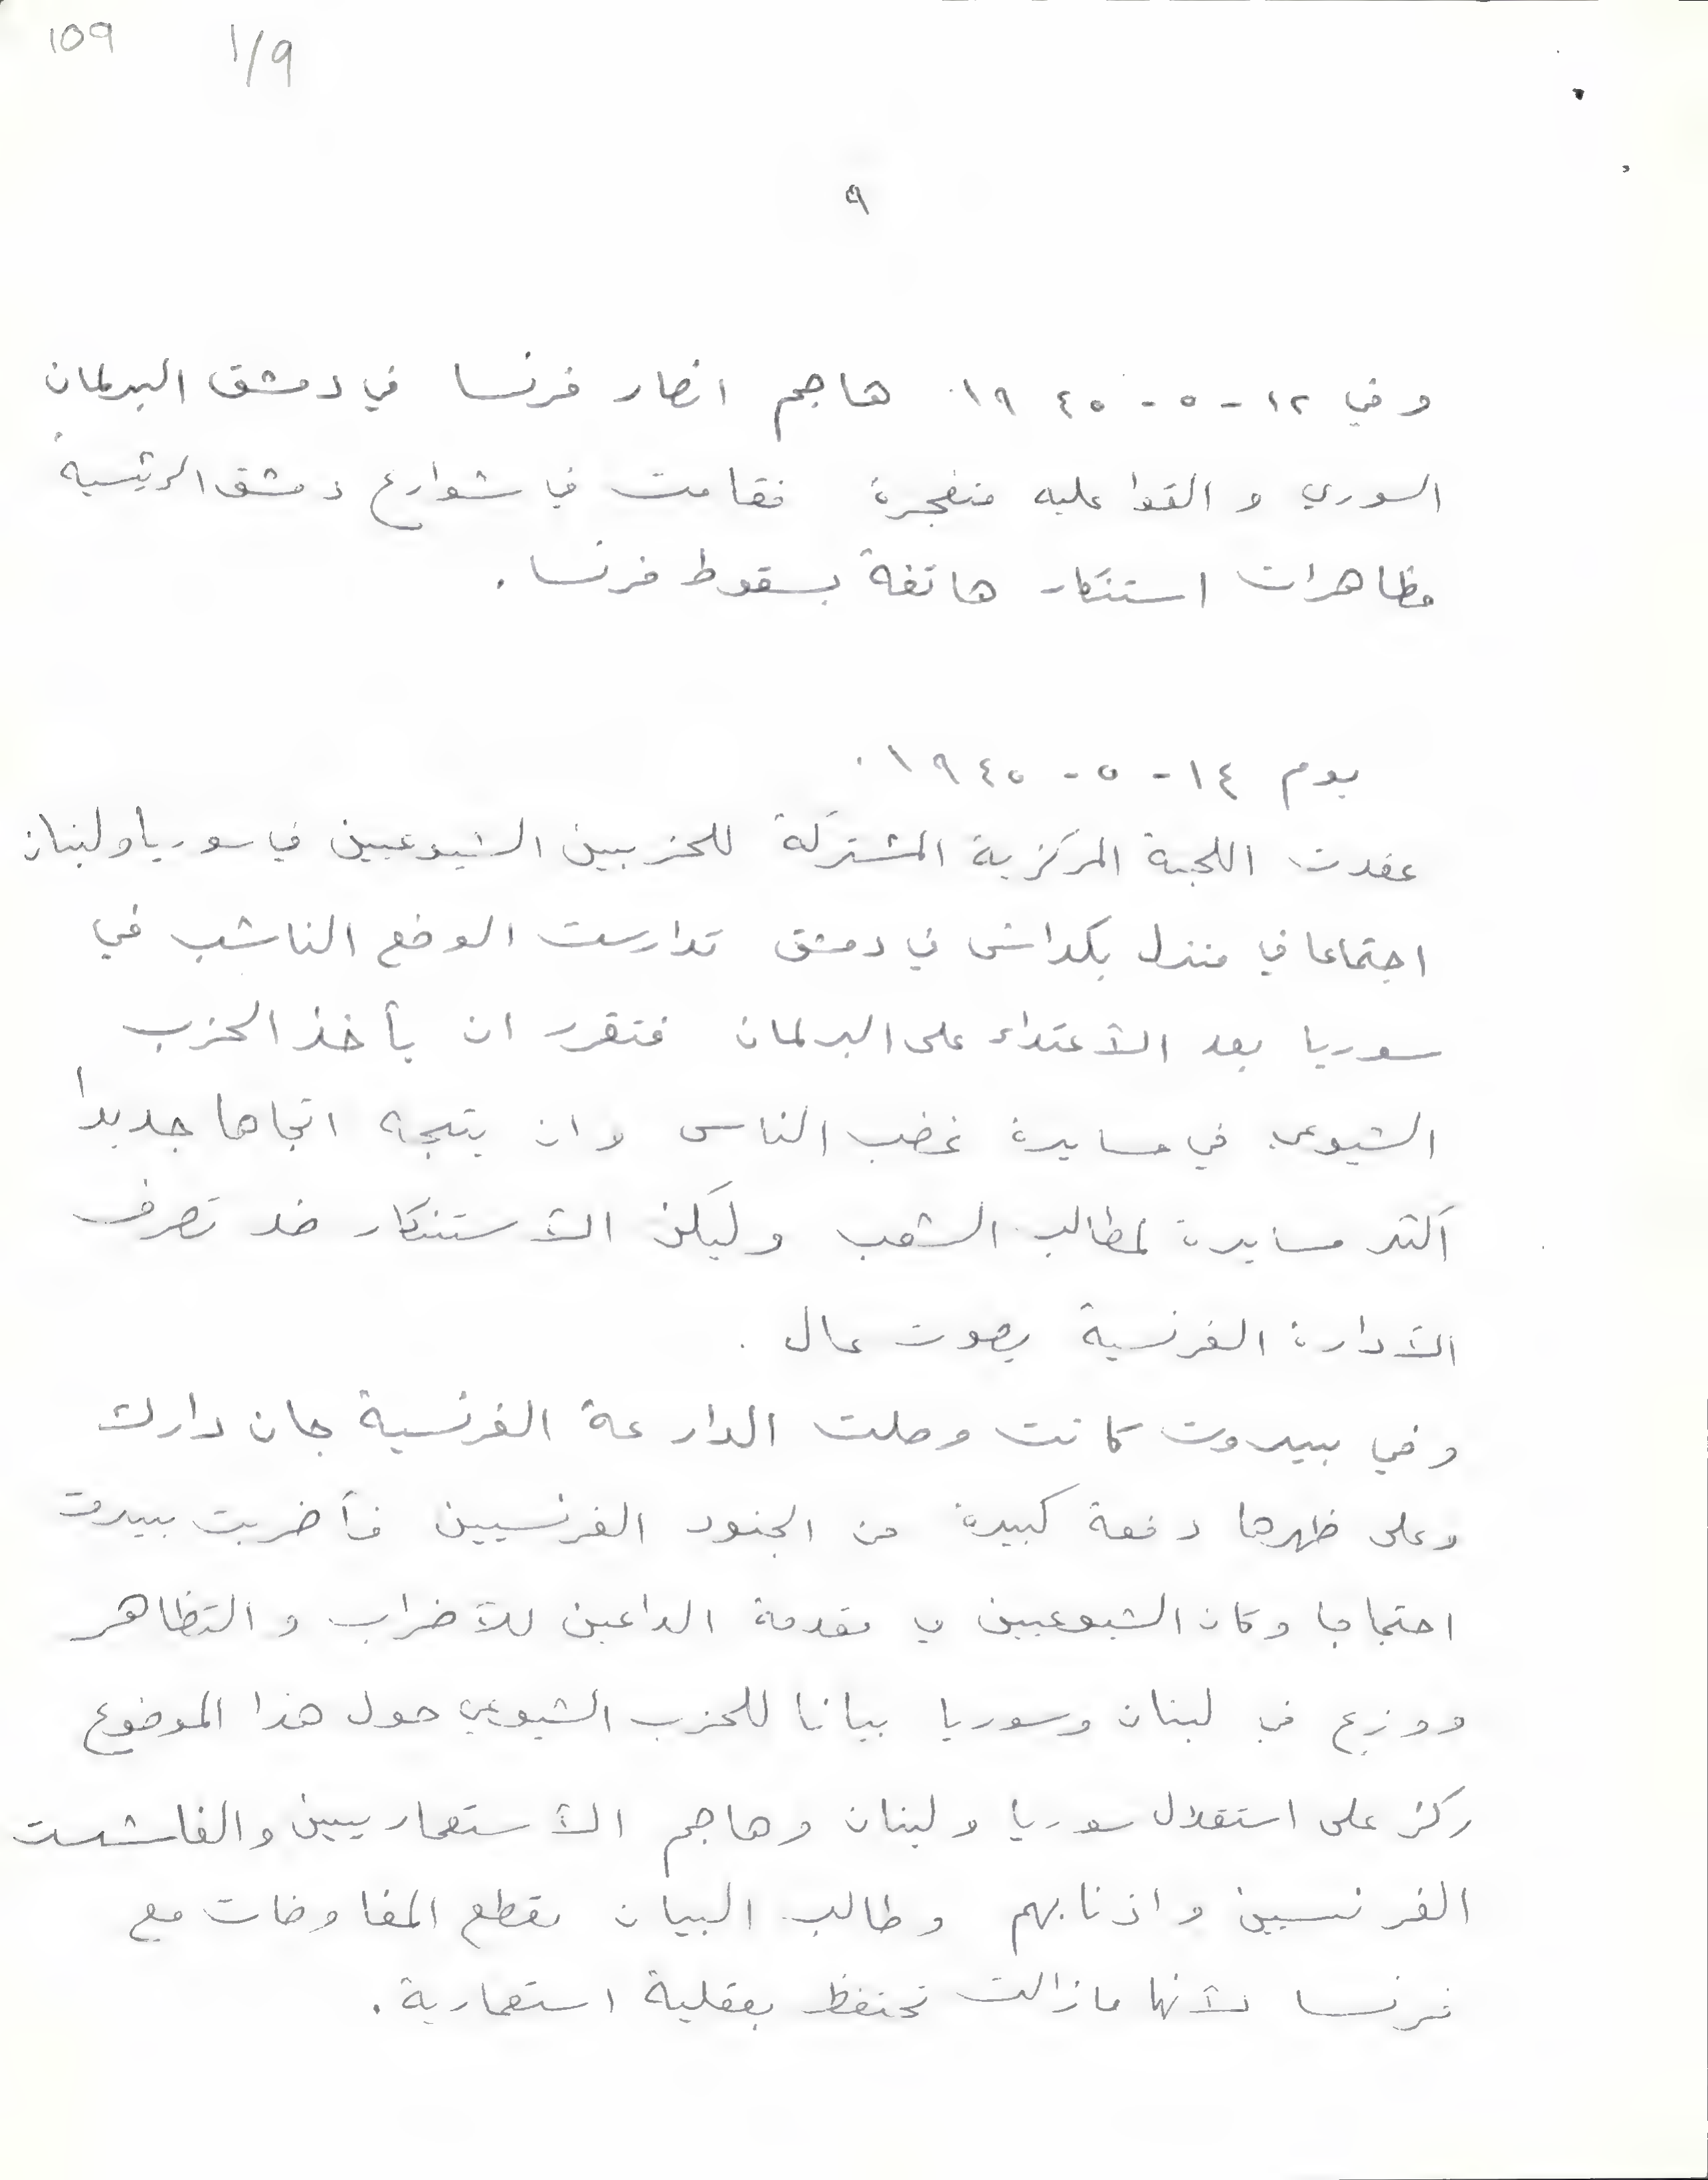 109
1/9
٩
وفي ١٢ - ٥ - ١٩٤٥ هاجم انصار فرنسا في دمشق البرلمان
السوري والقوا عليه متفجرة فقامت في شوارع دمشق الرئيسية
مظاهرات استنكار هاتفة بسقوط فرنسا .
يوم ١٤ - ٥ - ١٩٤٥ .
عقدت اللجنة المركزية المشتركة للحزبين الشيوعيين في سوريا ولبنان
اجتماعا في منزل بكداش في دمشق تدارست الوضع الناشب في
سوريا بعد الأعتداء على البرلمان فتقرر ان يأخذ الحزب
الشيوعي في مسايرة غضب الناس وان يتجه اتجاها جديدا
أكثر مسايرة لمطالب الشعب وليكن الأستنكار ضد تصرف
الأدارة الفرنسية بصوت عال .
وفي بيروت كانت وصلت الدارعة الفرنسية جان دارك
وعلى ظهرها دفعة كبيرة من الجنود الفرنسيين فأضربت بيروت
احتجاجا وكان الشيوعيين في مقدمة الداعين للأضراب والتظاهر
ووزع في لبنان وسوريا بيانا للحزب الشيوعي حول هذا الموضوع
ركز على استقلال سوريا ولبنان وهاجم الأستعماريين والفاشست
الفرنسيين واذنابهم وطالب البيان بقطع المفاوضات مع
فرنسا لأنها مازالت تحتفظ بعقلية استعمارية .